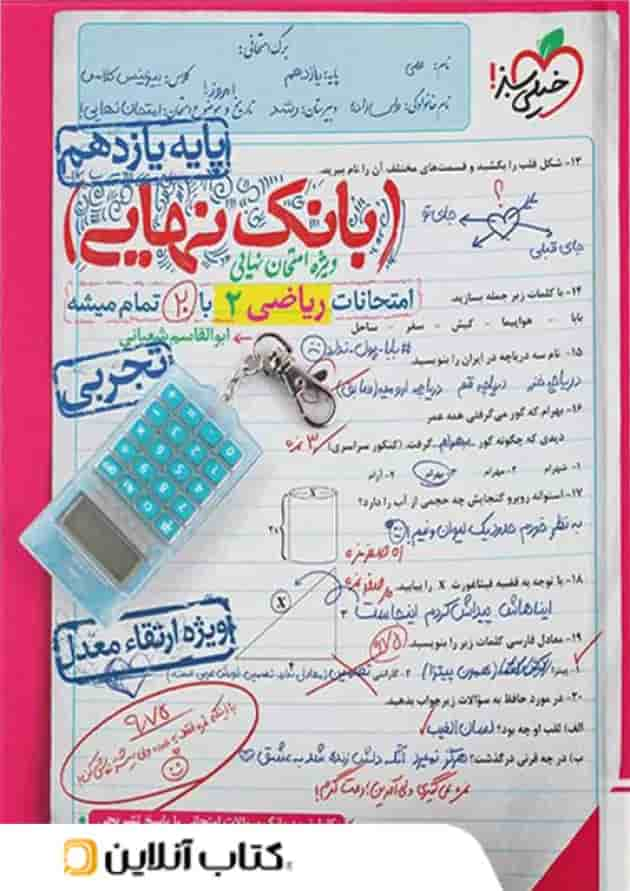 برگ امتحانی:
خیلی سبز!
نام:
پایه: یازدهم
کلاس: بیزینس کلاس
نام خانوادگی:
دبیرستان: رشد
امروز!
تاریخ و موضوع امتحان: امتحان نهایی!
پایه یازدهم
۱۳- شکل قلب را بکشید و قسمت‌های مختلف آن را نام ببرید.
؟
جای تو
جای قبلی
(بانک نهایی)
ویژه امتحان نهایی
امتحانات ریاضی ۲ با ۲۰ تمام میشه
ابوالقاسم شعبانی
۱۴- با کلمات زیر جمله بسازید.
بابا - هواپیما - کیش - سفر - ساحل
#بابا_پول_نداره
تجربی
۱۵- نام سه دریاچه در ایران را بنویسید.
دریاچه خزر دریاچه قم دریاچه ارومیه (سابق)
۱۶- بهرام که گور می‌گرفتی همه عمر
دیدی که چگونه گور بهرام گرفت. (کنکور سراسری)
۳ نمره
۱- شهرام ۲- مهرام ۳- بهرام ۴- آرام
۱۷- استوانه روبرو گنجایش چه حجمی از آب را دارد؟
x
۲x
به نظر خودم حدود یک لیوان و نیم!
۱۸- با توجه به قضیه فیثاغورث X را بیابید.
X
۳
۴
ایناهاش پیداش کردم اینجاست
ویژه ارتقاء معدل
۱۹- معادل فارسی کلمات زیر را بنویسید.
۹/۷۵
۱- پیتزا
(همون پیتزا)
۲- گارانتی
تضمین
۲۰- در مورد حافظ به سؤالات زیر جواب بدهید.
الف) لقب او چه بود؟ لسان الغیب
ب) در چه قرنی درگذشت؟ هرگز نمیرد آنکه دلش زنده شد به عشق
۹/۷۵
نمره نمی‌گیری ولی آفرین! دمت گرم!
کتاب آنلاین